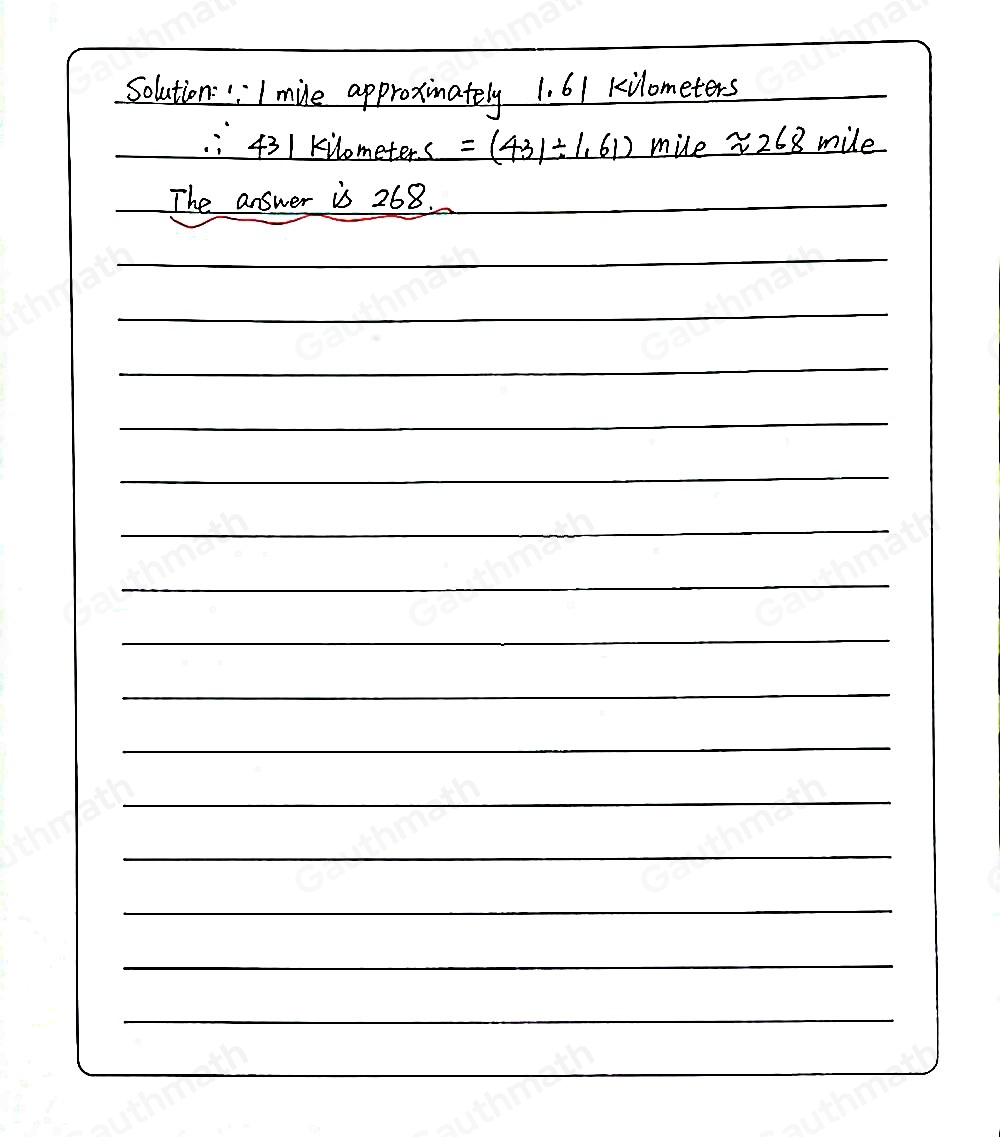 Solution: ∵ 1 mile approximately 1.61 kilometers
∴ 431 kilometers = (431÷1.61) mile ≈ 268 mile
The answer is 268.
Gauthmath